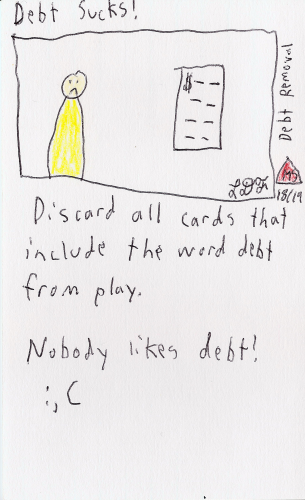 Debt Sucks!
$
Debt Removal
18/19
Discard all cards that
include the word debt
from play.
Nobody likes debt!
:,C